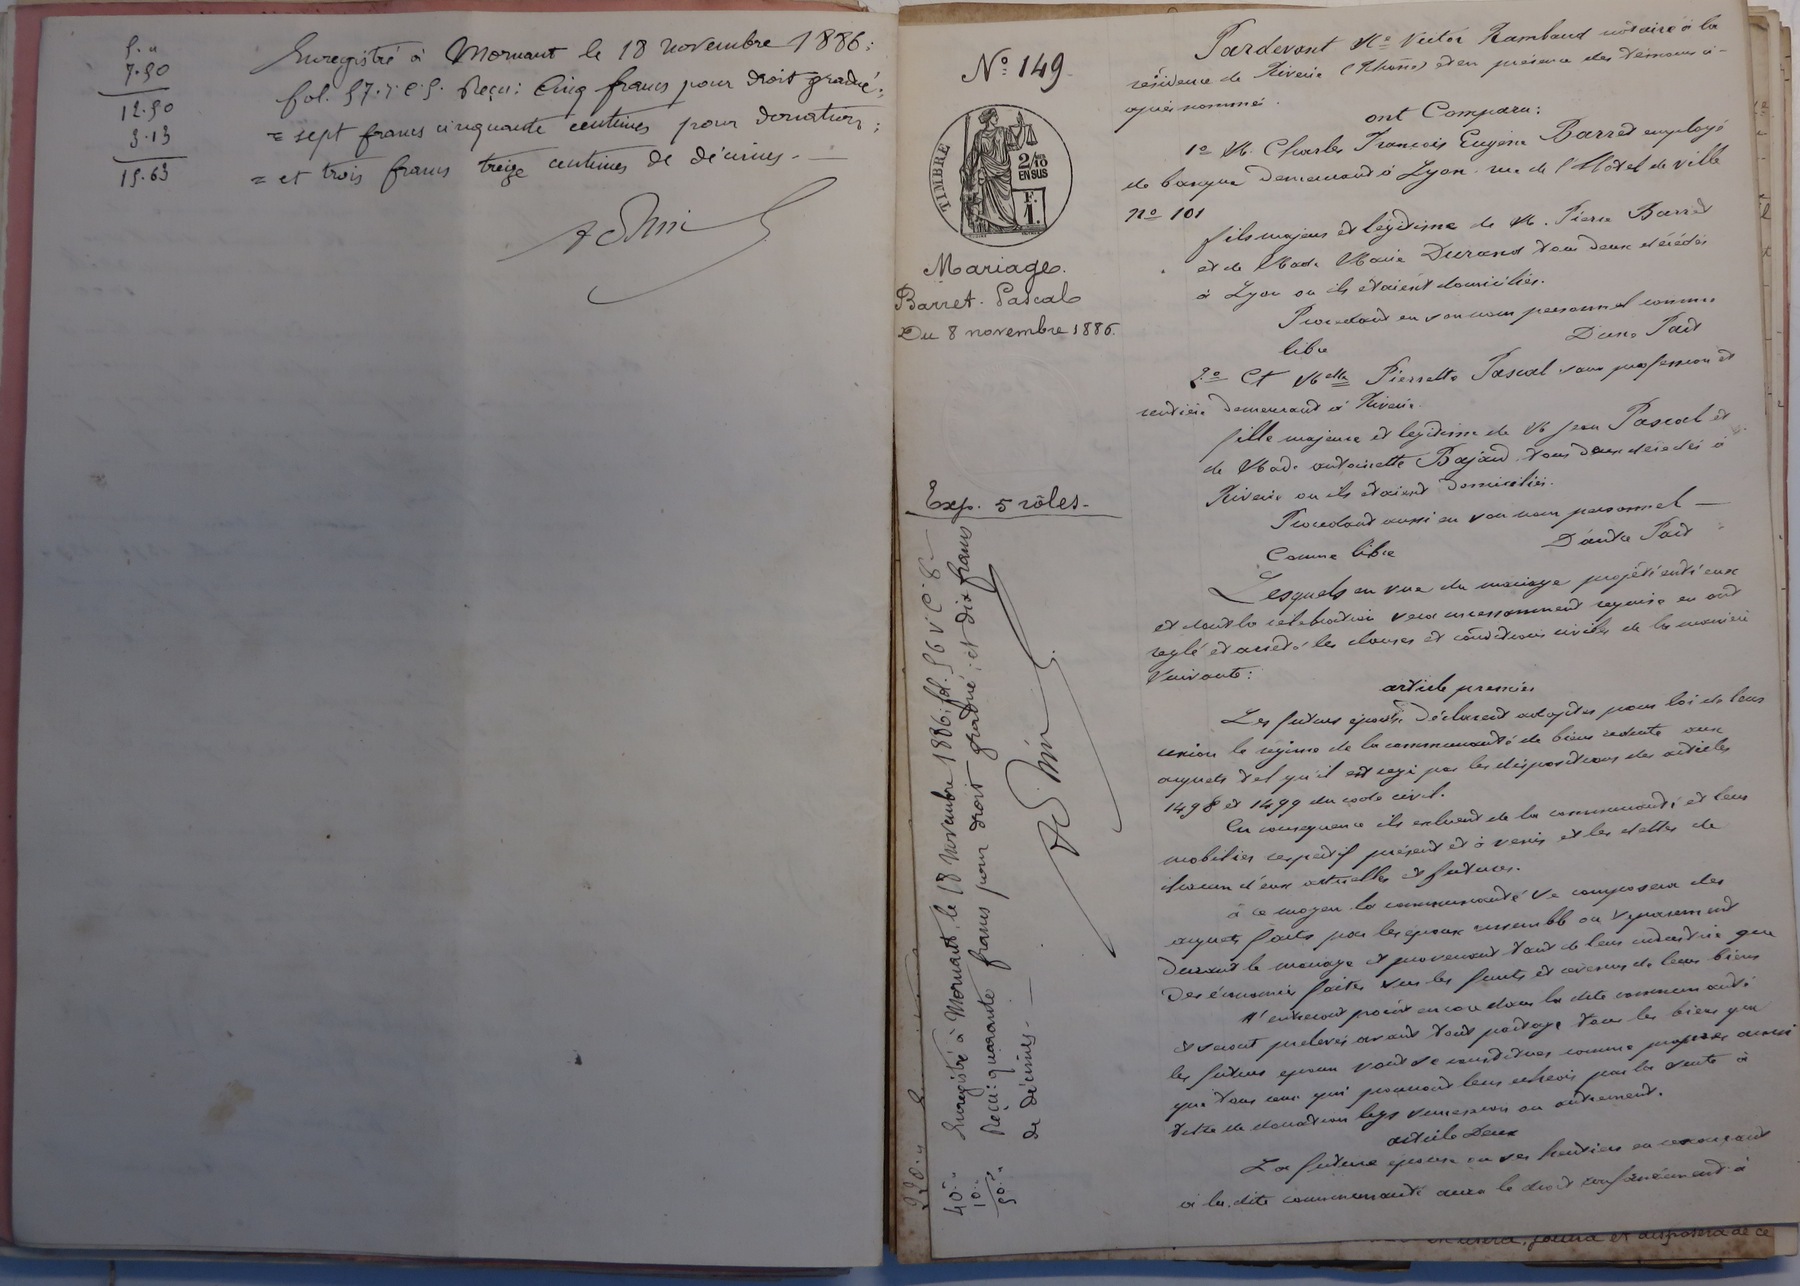 5. "
7.50
12.50
3.13
15.63
Enregistré à Mornant le 18 novembre 1886;
fol. 57. v. C. 5. Reçu: Cinq francs pour droit gradué;
= sept francs cinquante centimes pour donation;
= et trois francs treize centimes de décimes. —
N° 149
TIMBRE
2/10 EN SUS
F. 1.
Mariage.
Barret-Pascal
Du 8 novembre 1886.
Exp. 5 rôles.
Enregistré à Mornant, le 18 Novembre 1886, fol. 56 v C. 8.
Reçu: quarante francs pour droit gradué; et dix francs
de décimes. —
40. "
10. "
50. "
Pardevant Me Victor Rambaud notaire à la
résidence de Riverie (Rhône) et en présence des témoins ci-
après nommé.
ont Comparu:
1° M. Charles François Eugène Barret employé
de banque demeurant à Lyon rue de l'Hôtel de ville
n° 101
fils majeur et légitime de M. Pierre Barret
et de Made Marie Durand tous deux décédés
à Lyon ou ils étaient domiciliés.
Procédant en son nom personnel comme
libre D'une Part
2° Et Melle Pierrette Pascal sans profession et
rentière demeurant à Riverie.
fille majeure et légitime de M Jean Pascal et
de Made antoinette Bajard, tous deux décédés à
Riverie ou ils étaient domiciliés.
Procédant aussi en son nom personnel —
Comme libre D'autre Part
Lesquels en vue du mariage projeté entr'eux
et dont la célébration sera incessamment requise en ont
reglé et arrêté les clauses et conditions civiles de la manière
suivante:
article premier
Les futurs époux déclarent adopter pour loi de leur
union le régime de la communauté de biens réduite aux
acquets tel qu'il est régi par les dispositions des articles
1498 et 1499 du code civil.
En conséquence ils excluent de la communauté et leur
mobilier respectif présent et à venir et les dettes de
chacun d'eux actuelles et futures.
à ce moyen la communauté se composera des
acquets faits par les époux ensemble ou séparément
durant le mariage et provenant tant de leur industrie que
des économies faites sur les fruits et revenus de leurs biens
N'entreront point encore dans la dite communauté
et seront prélevés avant tout partage tous les biens que
les futurs époux vont se constituer comme propres aussi
que tous ceux qui pourront leur échoir par la suite à
titre de donation legs succession ou autrement.
article Deux
La future épouse ou ses héritiers en renonçant
à la dite communauté aura le droit conformément à